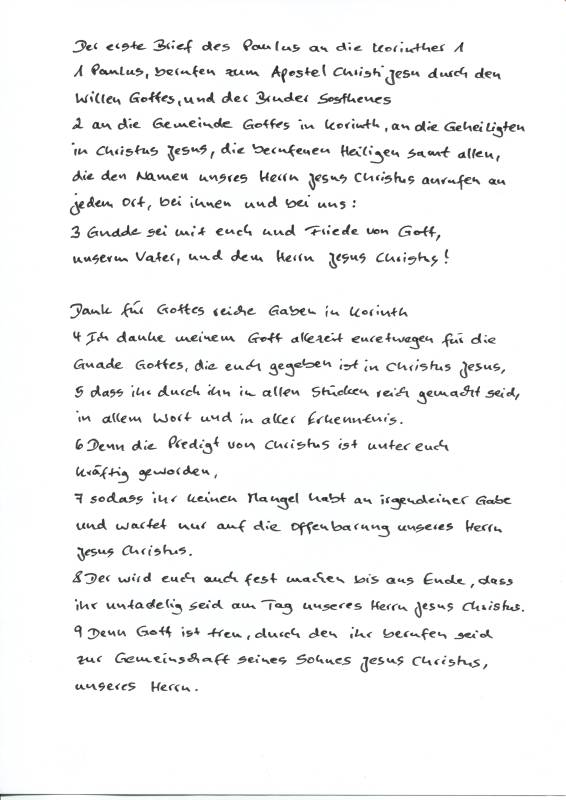 Der erste Brief des Paulus an die Korinther 1
1 Paulus, berufen zum Apostel Christi Jesu durch den
Willen Gottes, und der Bruder Sosthenes
2 an die Gemeinde Gottes in Korinth, an die Geheiligten
in Christus Jesus, die berufenen Heiligen samt allen,
die den Namen unsres Herrn Jesus Christus anrufen an
jedem Ort, bei ihnen und bei uns:
3 Gnade sei mit euch und Friede von Gott,
unserm Vater, und dem Herrn Jesus Christus!
Dank für Gottes reiche Gaben in Korinth
4 Ich danke meinem Gott allezeit euretwegen für die
Gnade Gottes, die euch gegeben ist in Christus Jesus,
5 dass ihr durch ihn in allen Stücken reich gemacht seid,
in allem Wort und in aller Erkenntnis.
6 Denn die Predigt von Christus ist unter euch
kräftig geworden,
7 sodass ihr keinen Mangel habt an irgendeiner Gabe
und wartet nur auf die Offenbarung unseres Herrn
Jesus Christus.
8 Der wird euch auch fest machen bis ans Ende, dass
ihr untadelig seid am Tag unseres Herrn Jesus Christus.
9 Denn Gott ist treu, durch den ihr berufen seid
zur Gemeinschaft seines Sohnes Jesus Christus,
unseres Herrn.